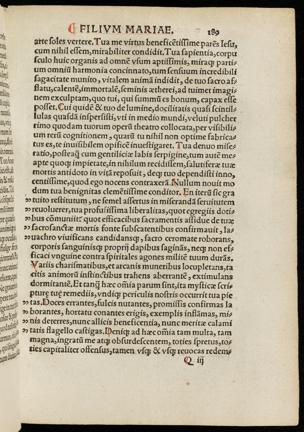 FILIVM MARIAE. 189
arte soles vertere. Tua me virtus beneficētissime parēs Iesu,
cum nihil essem, mirabiliter condidit. Tua sapientia, corpu
sculo huic organis ad omnē vsum aptissimis, miraq; parti
um omniū harmonia concinnato, tum sensuum incredibili
sagacitate munito, vitalem animā indidit, de tuo sacro af-
flatu, cælentē, immortalē, seminis ætherei, ad tui met imagi-
nem exculptam, quo tui, qui summū es bonum, capax esse
posset. Cui quidē & tuo de lumine, docilitatis quasi scintil-
lulas quasdā inspersisti, vti in medio mundi, veluti pulcher
rimo quodam tuorum operū theatro collocata, per visibili-
um rerū cognitionem, quasi tu nihil non optime fabrica-
tus es, te inuisibilem opificē inuestigaret. Tua denuo mise-
ratio, posteaq; cum gentilicia labis serpigine, tum autē me-
apte quoq; impietate, in nihilum recidissem, salutiferæ tuæ
mortis antidoto in vitā reposuit, deq; tuo dependisti inno-
centissime, quod ego nocens contraxerā. Nullum nouit mo-
dum tua benignitas clemētissime conditor. En iterū sic gra
tuito restitutum, ne semel assertus in miserandā seruitutem
reuoluerer, tua profusissima liberalitas, quot egregiis doti-
bus cōmuniit? quot efficacibus sacramentis assidue de tuæ
sacrosanctæ mortis fonte subscaturientibus confirmauit, la-
uachro viuificans candidansq;, sacro ceromate roborans,
corporis sanguinisq; proprij dapibus saginās, neq; non ef-
ficaci vnguine contra spiritales agones militē tuum durās.
Variis charismatibus, et arcanis muneribus locupletans, ex
citis animorū instinctibus trahens aberrantē, extimulans
dormitantē. Et tanq̄ hæc omnia parum sint, ita mysticæ scri-
pturæ præmuniēdo, vndiq; periculis nostris occurrit tua pie
tas. Doces errantes, fulcis nutantes, promissis confirmas la
borantes, hortatu conantes erigis, exemplis inflāmas, mi-
nis deterres, nunc allicis beneficentia, nunc meritæ calami
tatis flagello castigas. Deniq; ad hæc oīa tam multa, tam
magna, ingratū me atq; obsurdescentem, toties spretus, to-
ties capitaliter offensus, tamen vsq; & vsq; reuocas redem-
Q iij